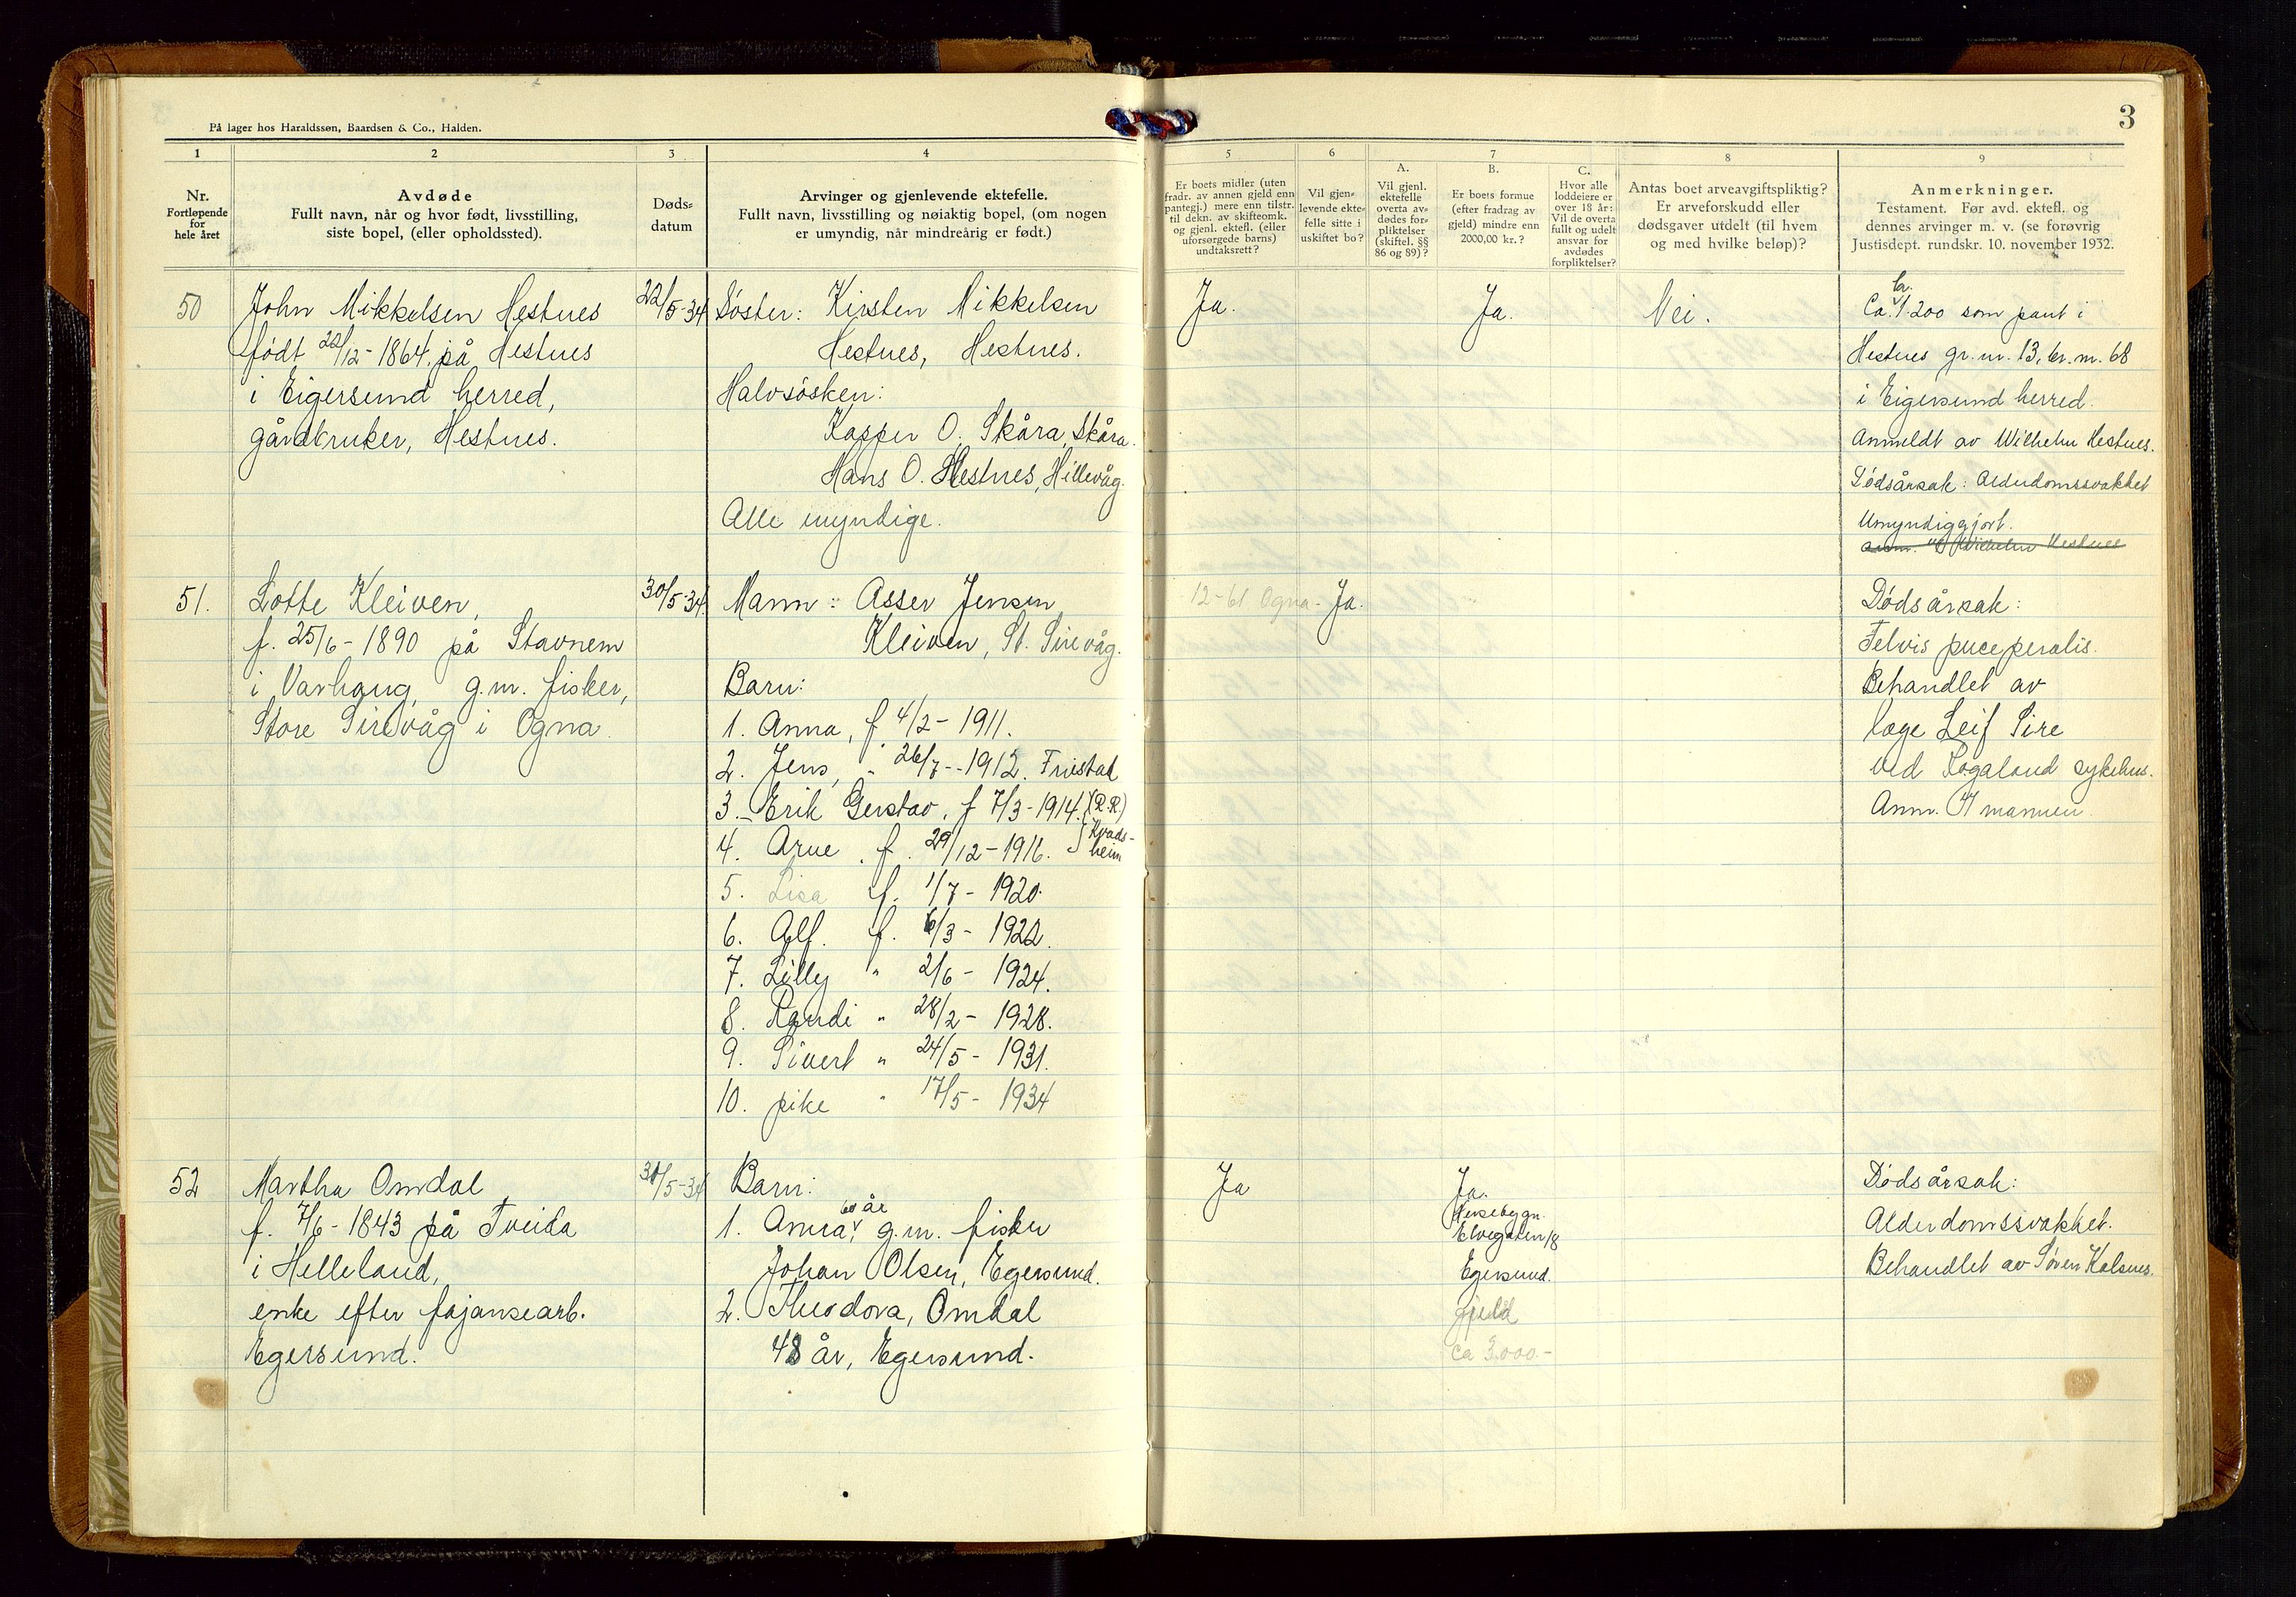 På lager hos Haraldssøn, Baardsen & Co., Halden.
3
1
2
3
4
5
6
7
8
9
Nr.
Fortløpende
for
hele året
Avdøde
Fullt navn, når og hvor født, livsstilling,
siste bopel, (eller opholdssted).
Døds-
datum
Arvinger og gjenlevende ektefelle.
Fullt navn, livsstilling og nøiaktig bopel, (om nogen
er umyndig, når mindreårig er født.)
Er boets midler (uten
fradr. av annen gjeld enn
pantegj.) mere enn tilstr.
til dekn. av skifteomk.
og gjenl. ektefl. (eller
uforsørgede barns)
undtaksrett?
Vil gjen-
levende ekte-
felle sitte i
uskiftet bo?
A.
Vil gjenl.
ektefelle
overta av-
dødes for-
pliktelser
(skiftel. §§
86 og 89)?
B.
Er boets formue
(efter fradrag av
gjeld) mindre enn
2000,00 kr.?
C.
Hvor alle
loddeiere er
over 18 år:
Vil de overta
fullt og udelt
ansvar for
avdødes
forpliktelser?
Antas boet arveavgiftspliktig?
Er arveforskudd eller
dødsgaver utdelt (til hvem
og med hvilke beløp)?
Anmerkninger.
Testament. Før avd. ektefl. og
dennes arvinger m. v. (se forøvrig
Justisdept. rundskr. 10. november 1932.
50
John Mikkelsen Hestnes
født 22/12-1864, på Hestnes
i Eigersund herred,
gårdbruker, Hestnes.
22/5-34
Søster: Kirsten Mikkelsen
Hestnes, Hestnes.
Halvsøsken:
Kasper O. Skåra, Skåra.
Hans O. Hestnes, Hillevåg.
Alle myndige.
Ja.
Ja.
Nei.
kr.
Ca. 1.200 som pant i
Hestnes gr.nr. 13, br.nr. 68
i Eigersund herred.
Anmeldt av Wilhelm Hestnes.
Dødsårsak: Alderdomssvakhet
Umyndiggjort.
anm. Wilhelm Hestnes
51.
Lotte Kleiven,
f. 25/6-1890 på Stavnem
i Varhaug, g.m. fisker,
Store Sirevåg i Ogna.
30/5-34.
Mann: Asser Jensen
Kleiven, St. Sirevåg.
Barn:
1. Anna, f 4/2-1911.
2. Jens, " 26/7-1912. Fristad
3. Erik Gustav, f 7/3-1914. (R.R.)
4. Arne, f. 29/12-1916. } Kvads-
heim
5. Lisa f. 1/7-1920.
6. Alf. f. 6/3-1922.
7. Lilly " 2/6-1924.
8. Randi " 28/2-1928.
9. Sivert " 24/5-1931.
10. pike " 17/5-1934
12-61 Ogna.
Ja.
Dødsårsak:
Felvis puceperalis.
Behandlet av
læge Leif Sire
ved Rogaland sykehus.
Anm. av mannen.
52
Martha Omdal,
f. 7/6-1843 på Tveida
i Helleland,
enke efter fajansearb.
Egersund.
31/5-34
Barn:
60 år
1. Anna, g.m. fisker
Johan Olsen, Egersund.
2. Theodora, Omdal
48 år, Egersund.
Ja
Ja.
Elvegaten 18
Egersund.
gjeld
ca 3.000.-
Dødsårsak:
Alderdomssvakhet.
Behandlet av Søren Kalsnes.